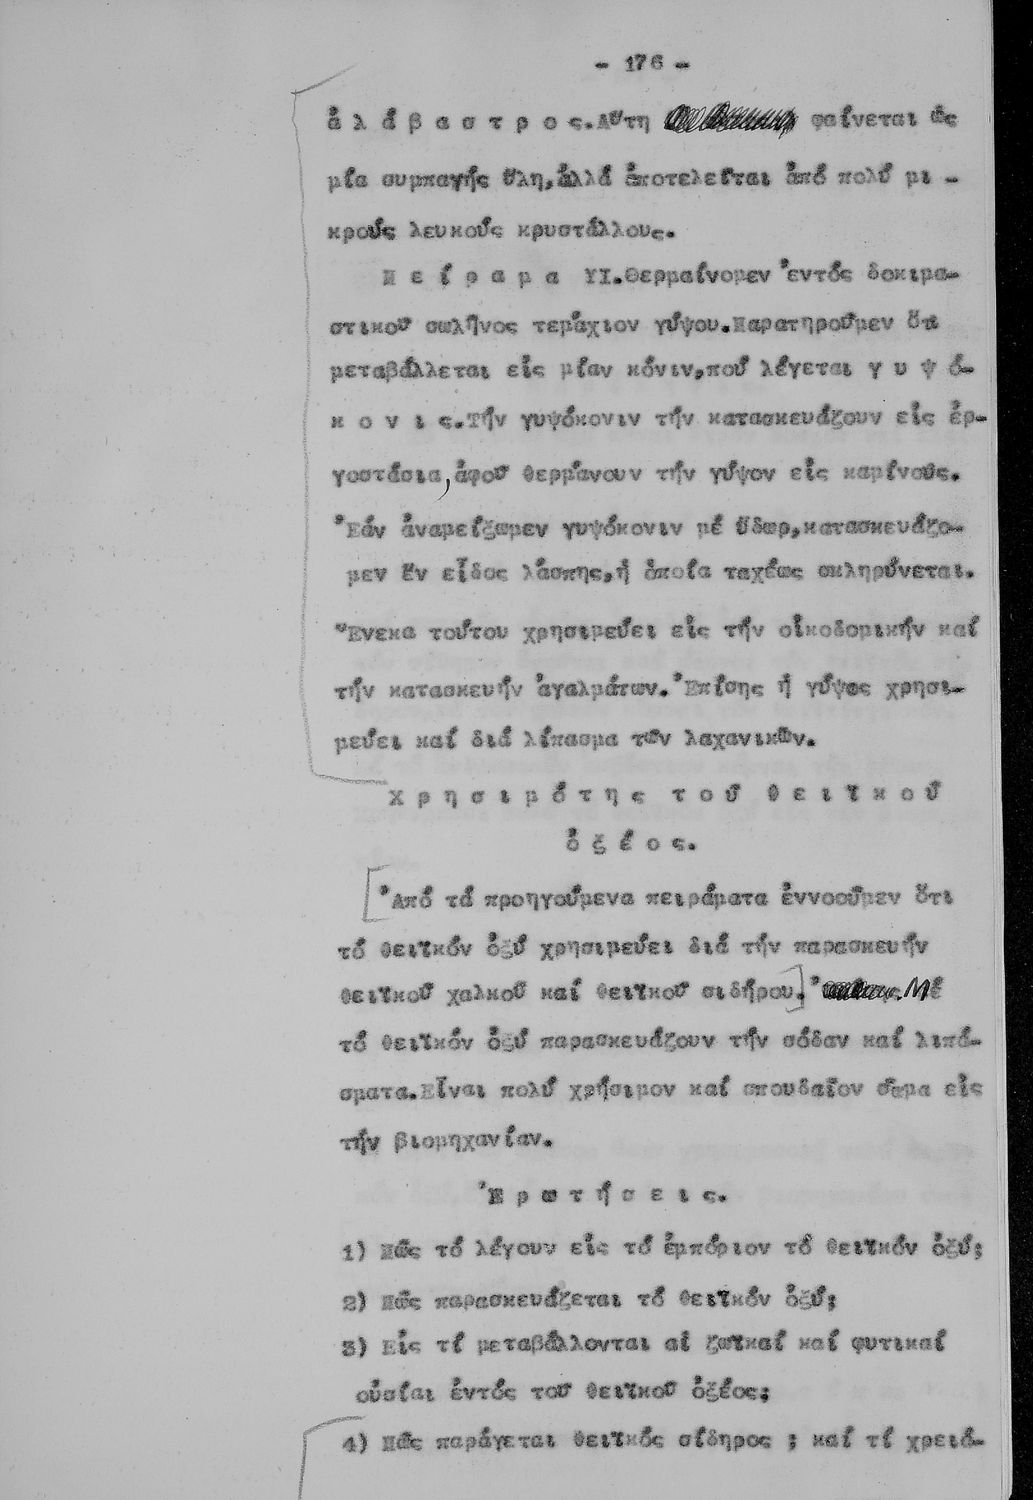 - 176 -
ἀ λ ά β α σ τ ρ ο ς. Αὕτη φαίνεται ὡς
μία συμπαγής ὕλη, ἀλλά ἀποτελεῖται ἀπό πολύ μι -
κρούς λευκούς κρυστάλλους.
Π ε ί ρ α μ α ΥΙ. Θερμαίνομεν ἐντός δοκιμα-
στικοῦ σωλῆνος τεμάχιον γύψου. Παρατηροῦμεν ὅτι
μεταβάλλεται εἰς μίαν κόνιν, πού λέγεται γ υ ψ ό-
κ ο ν ι ς. Τήν γυψόκονιν τήν κατασκευάζουν εἰς ἐρ-
γοστάσια, ἀφοῦ θερμάνουν τήν γύψον εἰς καμίνους.
Ἐάν ἀναμείξωμεν γυψόκονιν μέ ὕδωρ, κατασκευάζο-
μεν ἕν εἶδος λάσπης, ἡ ὁποία ταχέως σκληρύνεται.
Ἕνεκα τούτου χρησιμεύει εἰς τήν οἰκοδομικήν καί
τήν κατασκευήν ἀγαλμάτων. Ἐπίσης ἡ γύψος χρησι-
μεύει καί διά λίπασμα τῶν λαχανικῶν.
Χ ρ η σ ι μ ό τ η ς τ ο ῦ θ ε ι ϊ κ ο ῦ
ὀ ξ έ ο ς.
Ἀπό τά προηγούμενα πειράματα ἐννοοῦμεν ὅτι
τό θειϊκόν ὀξύ χρησιμεύει διά τήν παρασκευήν
θειϊκοῦ χαλκοῦ καί θειϊκοῦ σιδήρου. Μέ
τό θειϊκόν ὀξύ παρασκευάζουν τήν σόδαν καί λιπά-
σματα. Εἶναι πολύ χρήσιμον καί σπουδαῖον σῶμα εἰς
τήν βιομηχανίαν.
Ἐ ρ ω τ ή σ ε ι ς.
1) Πῶς τό λέγουν εἰς τό ἐμπόριον τό θειϊκόν ὀξύ;
2) Πῶς παρασκευάζεται τό θειϊκόν ὀξύ;
3) Εἰς τί μεταβάλλονται αἱ ζωϊκαί καί φυτικαί
οὐσίαι ἐντός τοῦ θειϊκοῦ ὀξέος;
4) Πῶς παράγεται θειϊκός σίδηρος ; καί τί χρειά-